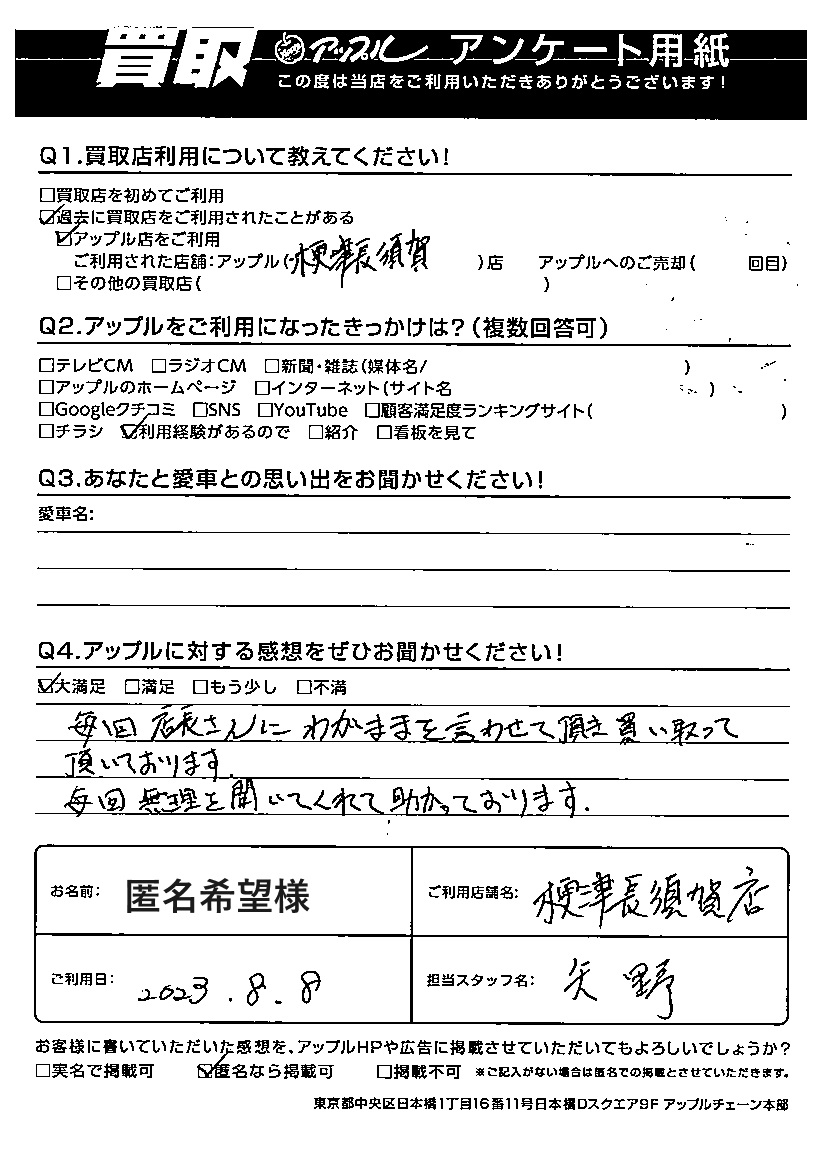 買取 Apple アップル アンケート用紙
この度は当店をご利用いただきありがとうございます!
Q1.買取店利用について教えてください!
□買取店を初めてご利用
☑過去に買取店をご利用されたことがある
☑アップル店をご利用
ご利用された店舗:アップル(梗津長須賀 )店 アップルへのご売却( 回目)
□その他の買取店( )
Q2.アップルをご利用になったきっかけは?(複数回答可)
□テレビCM □ラジオCM □新聞・雑誌(媒体名/ )
□アップルのホームページ □インターネット(サイト名 )
□Googleクチコミ □SNS □YouTube □顧客満足度ランキングサイト( )
□チラシ ☑利用経験があるので □紹介 □看板を見て
Q3.あなたと愛車との思い出をお聞かせください!
愛車名:
Q4.アップルに対する感想をぜひお聞かせください!
☑大満足 □満足 □もう少し □不満
毎回 店長さんに わがままを言わせて頂き買い取って
頂いております.
毎回 無理を聞いてくれて助かっております.
お名前: 匿名希望様 ご利用店舗名: 梗津長須賀店
ご利用日: 2023.8.8 担当スタッフ名: 矢野
お客様に書いていただいた感想を、アップルHPや広告に掲載させていただいてもよろしいでしょうか?
□実名で掲載可 ☑匿名なら掲載可 □掲載不可 ※ご記入がない場合は匿名での掲載とさせていただきます。
東京都中央区日本橋1丁目16番11号日本橋Dスクエア9F アップルチェーン本部